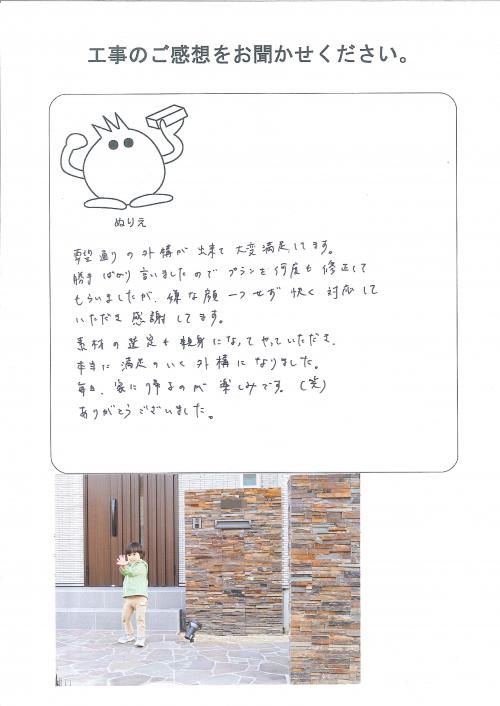 工事のご感想をお聞かせください。
ぬりえ
要望通りの外構が出来て大変満足してます。
勝手ばかり言いましたのでプランを何度も修正して
もらいましたが、嫌な顔一つせず快く対応して
いただき感謝してます。
素材の選定も親身になってやっていただき、
本当に満足のいく外構になりました。
毎日、家に帰るのが楽しみです。(笑)
ありがとうございました。